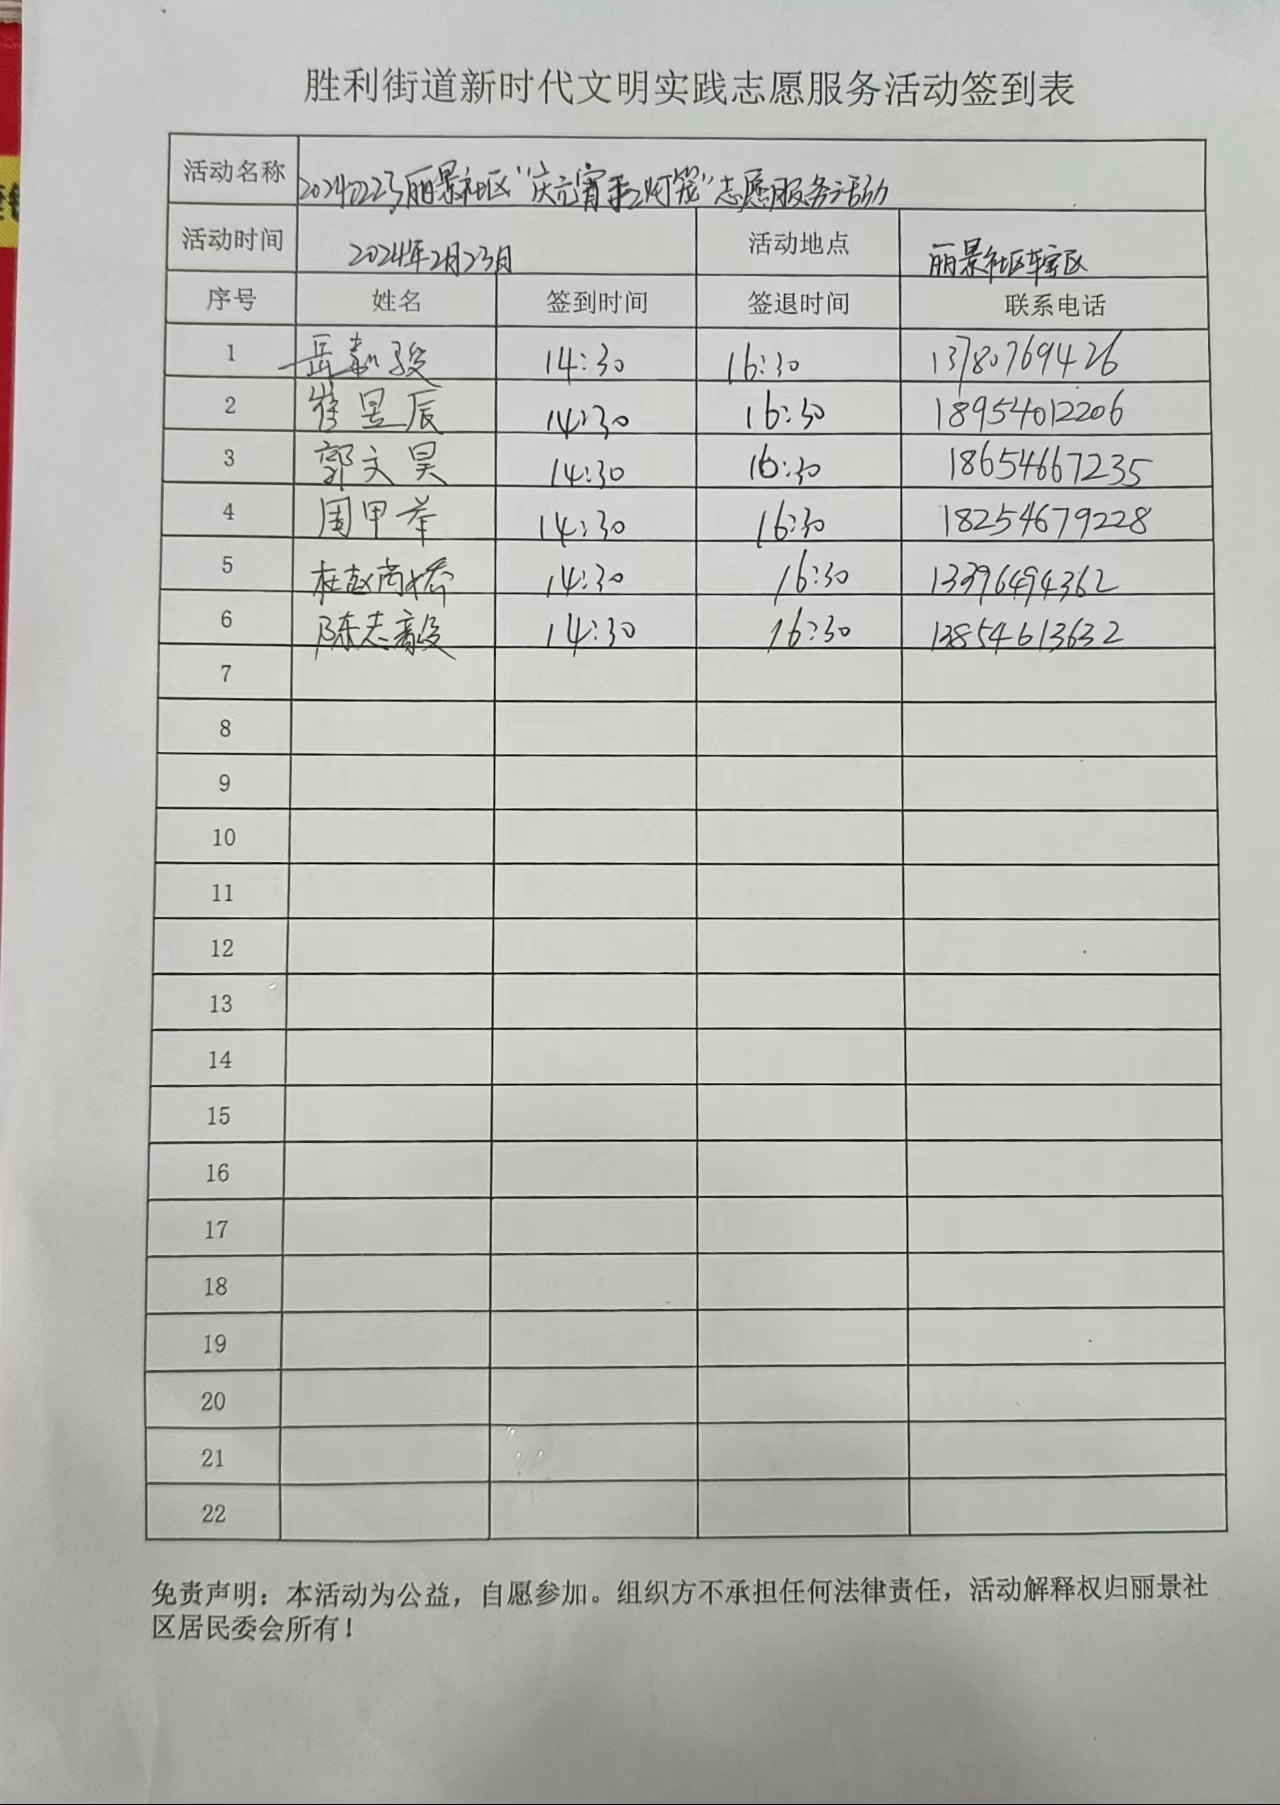 胜利街道新时代文明实践志愿服务活动签到表
活动名称 20240223丽景社区“庆元宵手工灯笼”志愿服务活动
活动时间 2024年2月23日 活动地点 丽景社区辖区
序号 姓名 签到时间 签退时间 联系电话
1 岳 骏 14:30 16:30 13780769426
2 崔昱辰 14:30 16:30 18954012206
3 郭文昊 14:30 16:30 18654667235
4 周甲举 14:30 16:30 18254679228
5 杜赵尚 14:30 16:30 13396494362
6 陈志毅 14:30 16:30 13854613632
7
8
9
10
11
12
13
14
15
16
17
18
19
20
21
22
免责声明：本活动为公益，自愿参加。组织方不承担任何法律责任，活动解释权归丽景社
区居民委会所有！